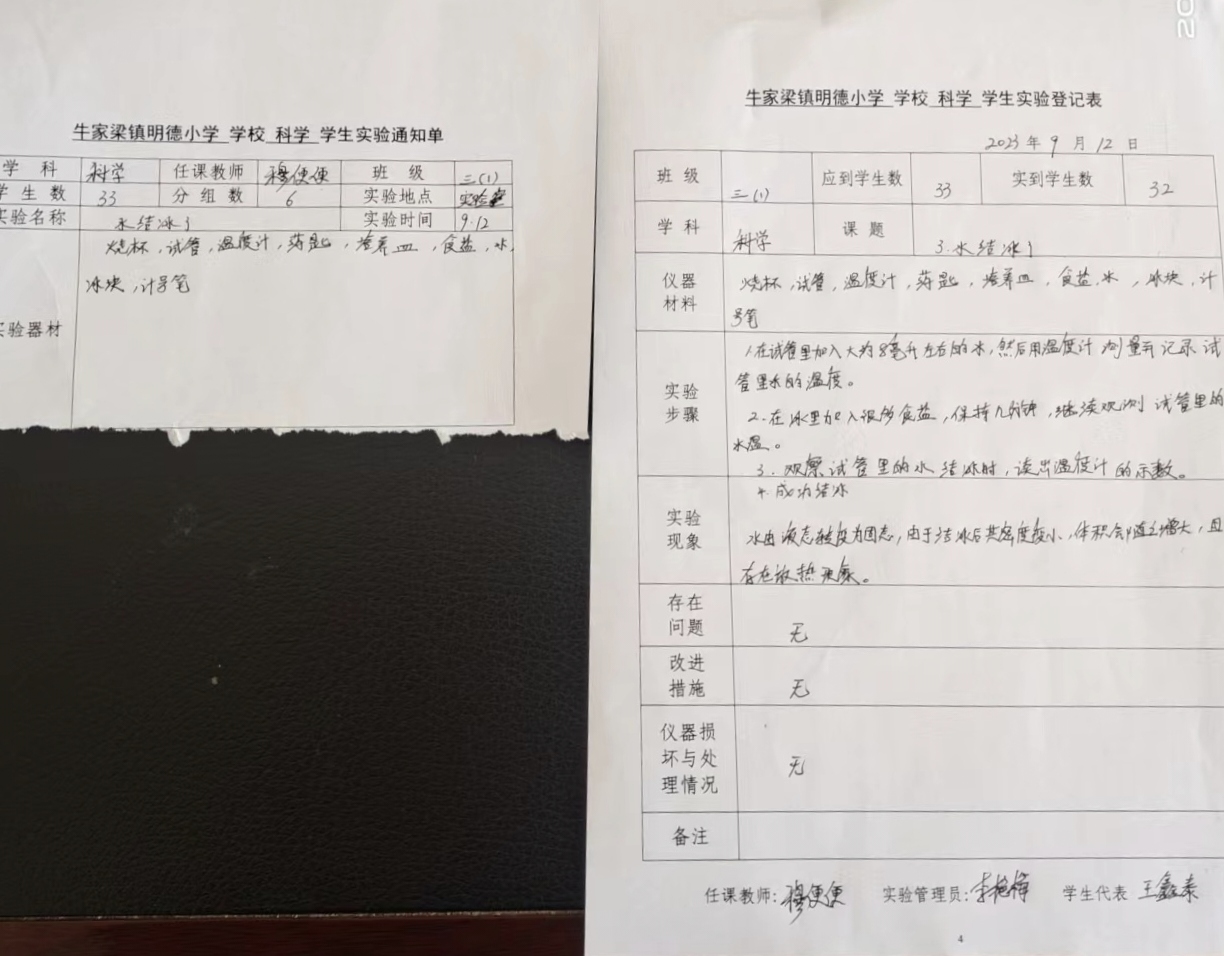 牛家梁镇明德小学 学校 科学 学生实验通知单
学 科 科学 任课教师 穆便便 班 级 三(1)
学生数 33 分组数 6 实验地点 实验室
实验名称 水结冰了 实验时间 9.12
烧杯,试管,温度计,药匙,培养皿,食盐,水,
冰块,计号笔
实验器材
牛家梁镇明德小学 学校 科学 学生实验登记表
2023年 9 月 12 日
班 级 三(1) 应到学生数 33 实到学生数 32
学 科 科学 课 题 3.水结冰了
仪器材料 烧杯,试管,温度计,药匙,培养皿,食盐,水,冰块,计
号笔
实验步骤
1.在试管里加入大约8毫升左右的水,然后用温度计测量并记录试
管里水的温度。
2.在冰里加入很多食盐,保持几分钟,继续观测试管里的
水温。
3.观察试管里的水结冰时,读出温度计的示数。
4.成功结冰
实验现象
水由液态转变为固态,由于结冰后其密度变小,体积会随之增大,且
存在放热现象。
存在问题 无
改进措施 无
仪器损坏与处理情况 无
备注
任课教师:穆便便 实验管理员:李艳梅 学生代表 王鑫泰
4